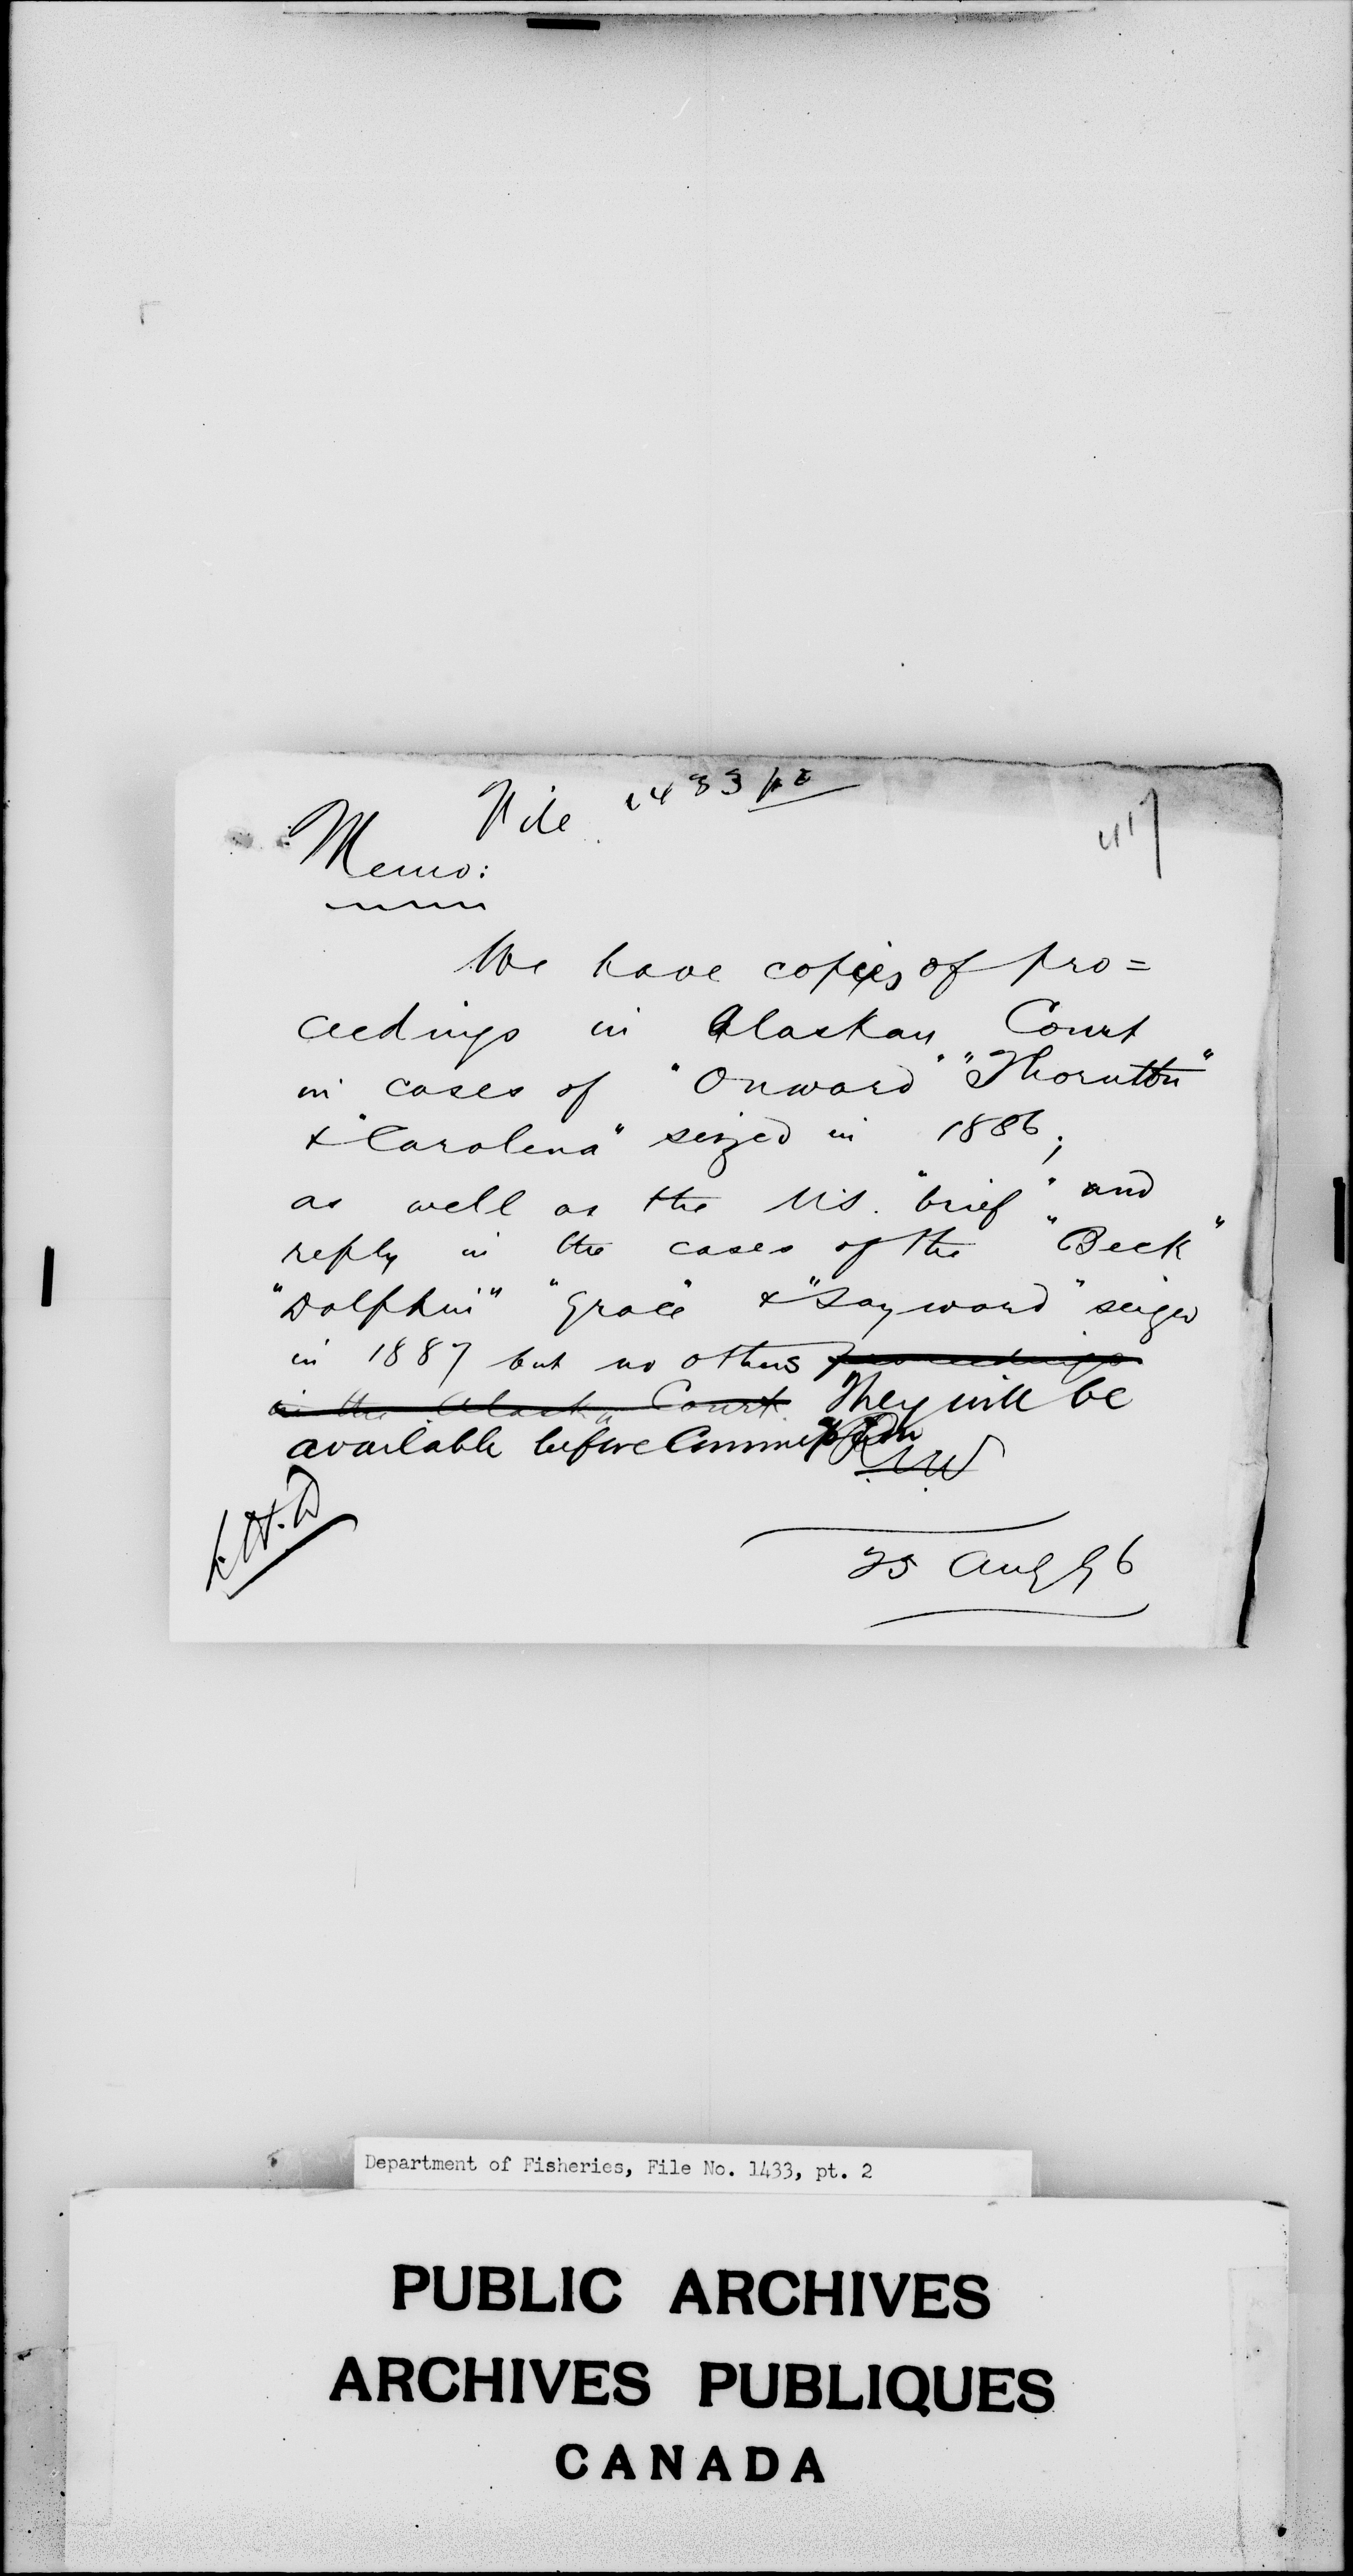 File 1433 pt 2
417
Memo:
We have copies of pro=
ceedings in Alaskan Court
in cases of "Onward" "Thornton"
& "Carolena" seized in 1886;
as well as the U.S. "brief" and
reply in the cases of the "Beck"
"Dolphin" "Grace" & "Sayward" seized
in 1887 but no others proceedings
in the Alaska Court. They will be
available before Commission
R.N.V.
L.H.D
25 Aug 96
Department of Fisheries, File No. 1433, pt. 2
PUBLIC ARCHIVES
ARCHIVES PUBLIQUES
CANADA